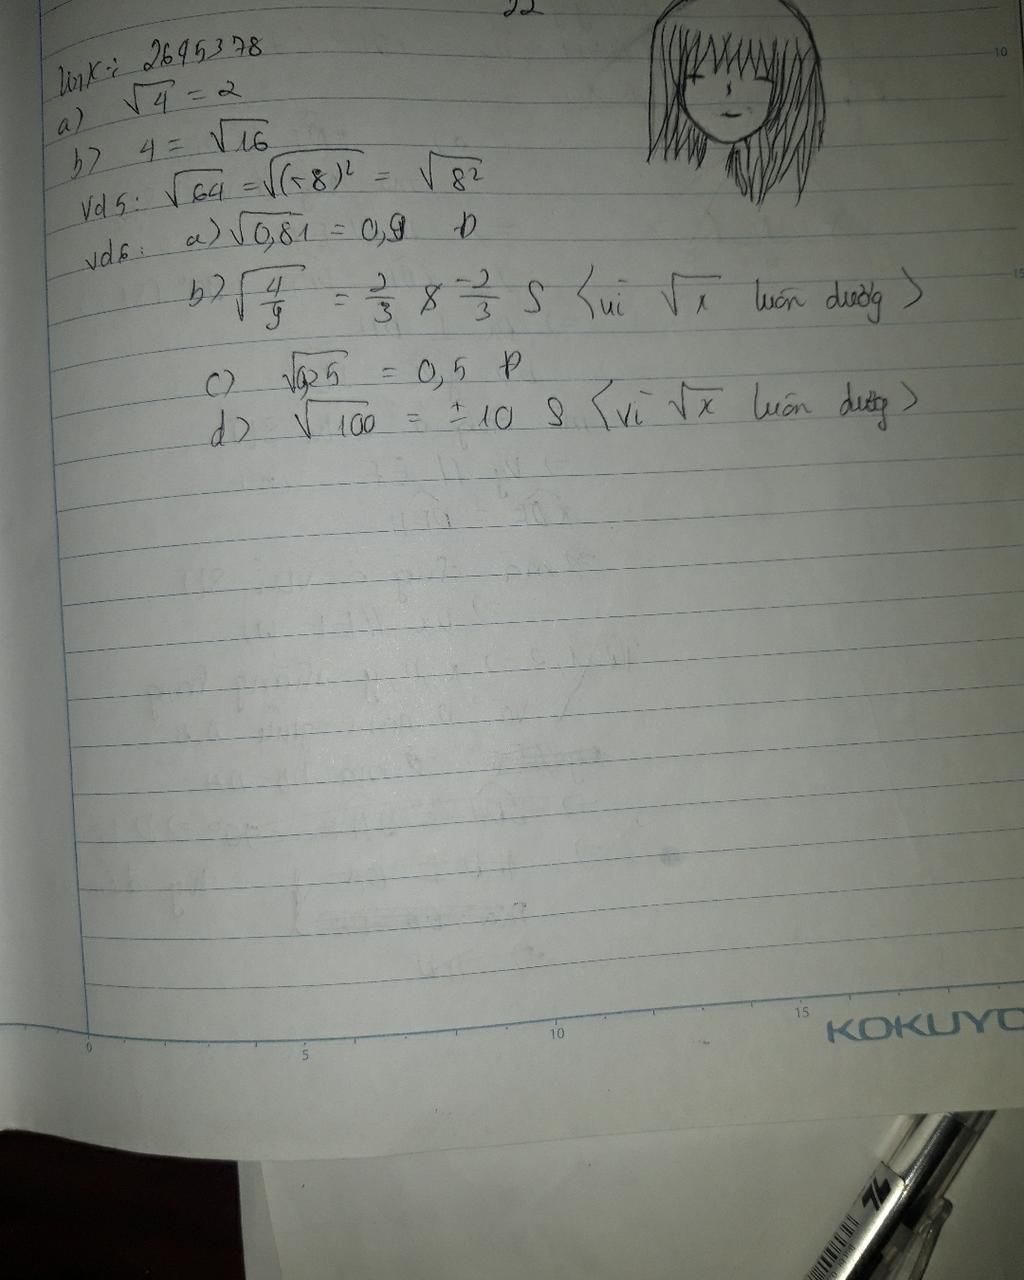 22
link: 2695378
a) √4 = 2
b) 4 = √16
Vd5: √64 = √(-8)² = √8²
vd6: a) √0,81 = 0,9 Đ
b) √4/9 = 2/3 & -2/3 S <vì √x luôn dương>
c) √0,25 = 0,5 Đ
d) √100 = ±10 S <vì √x luôn dương>
10
15
0 5 10 15
KOKUYO